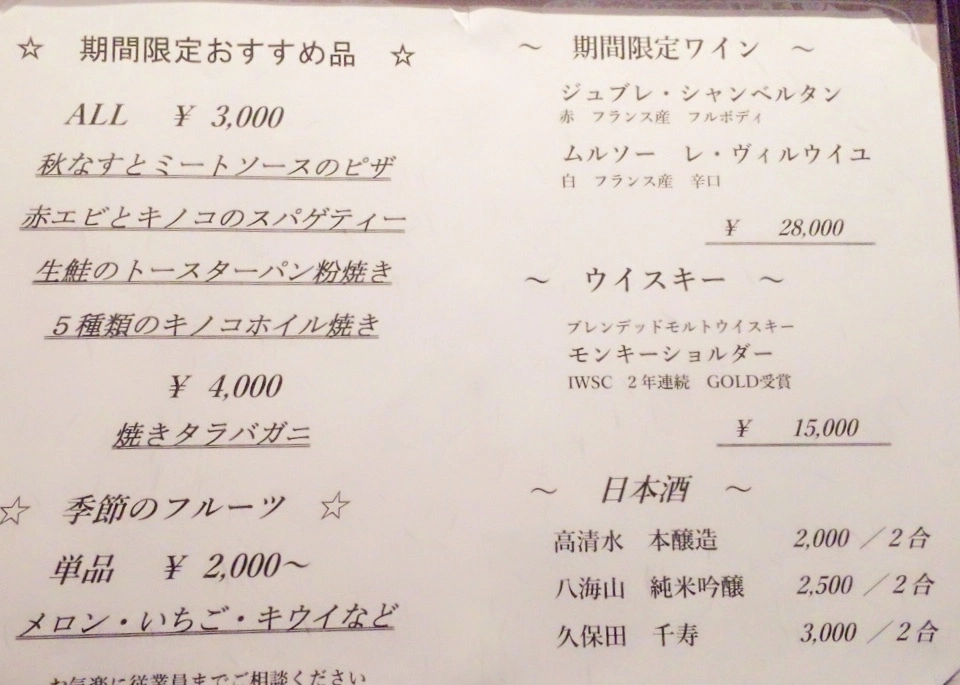 ☆ 期間限定おすすめ品 ☆
ALL ¥ 3,000
秋なすとミートソースのピザ
赤エビとキノコのスパゲティー
生鮭のトースターパン粉焼き
５種類のキノコホイル焼き
¥ 4,000
焼きタラバガニ
☆ 季節のフルーツ ☆
単品 ¥ 2,000～
メロン・いちご・キウイなど
お気楽に従業員までご相談ください
～ 期間限定ワイン ～
ジュブレ・シャンベルタン
赤 フランス産 フルボディ
ムルソー レ・ヴィルウイユ
白 フランス産 辛口
¥ 28,000
～ ウイスキー ～
ブレンデッドモルトウイスキー
モンキーショルダー
IWSC ２年連続 GOLD受賞
¥ 15,000
～ 日本酒 ～
高清水 本醸造 2,000 ／２合
八海山 純米吟醸 2,500 ／２合
久保田 千寿 3,000 ／２合